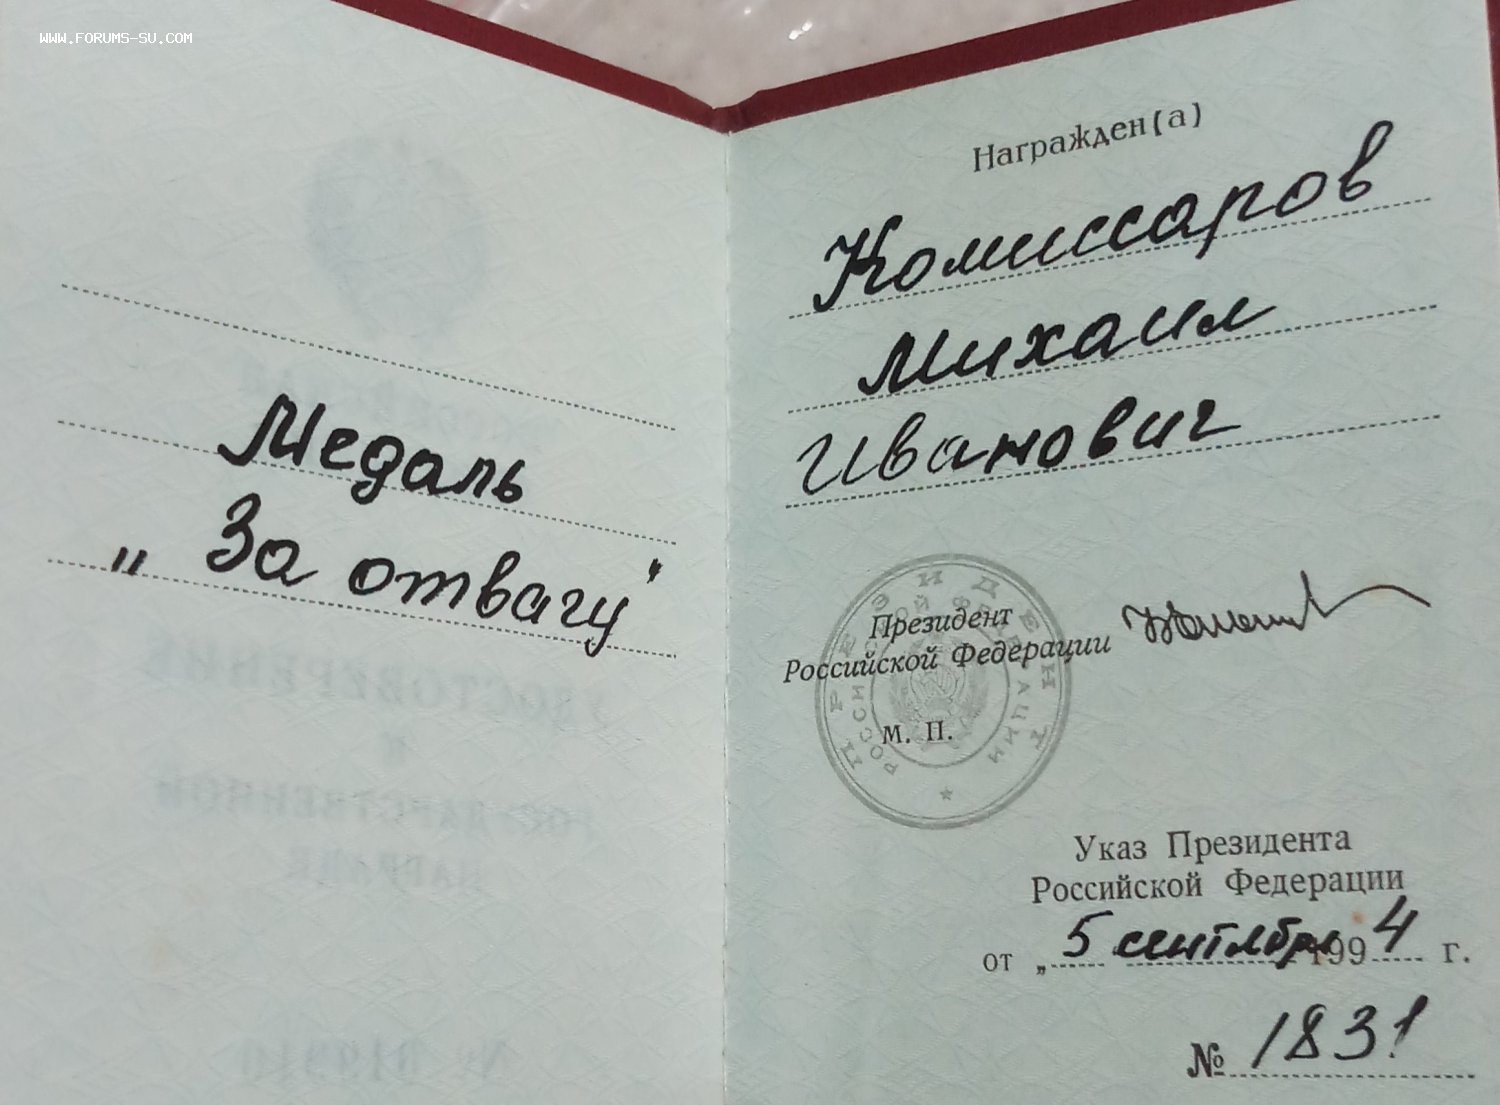 WWW.FORUMS-SU.COM
Медаль
„За отвагу"
Награжден(а)
Комиссаров
Михаил
Иванович
ПРЕЗИДЕНТ
РОССИЙСКОЙ ФЕДЕРАЦИИ
Президент
Российской Федерации
М. П.
Указ Президента
Российской Федерации
от „5 сентября 1994 г.
№ 1831